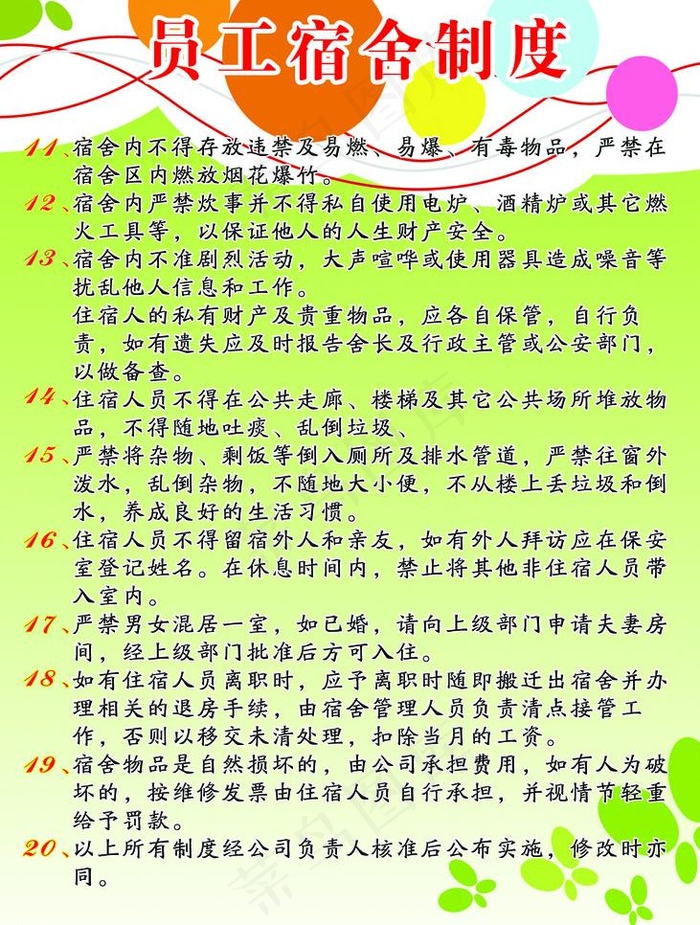 员工宿舍制度
11、宿舍内不得存放违禁及易燃、易爆、有毒物品，严禁在
宿舍区内燃放烟花爆竹。
12、宿舍内严禁炊事并不得私自使用电炉、酒精炉或其它燃
火工具等，以保证他人的人生财产安全。
13、宿舍内不准剧烈活动，大声喧哗或使用器具造成噪音等
扰乱他人信息和工作。
住宿人的私有财产及贵重物品，应各自保管，自行负
责，如有遗失应及时报告舍长及行政主管或公安部门，
以做备查。
14、住宿人员不得在公共走廊、楼梯及其它公共场所堆放物
品，不得随地吐痰、乱倒垃圾、
15、严禁将杂物、剩饭等倒入厕所及排水管道，严禁往窗外
泼水，乱倒杂物，不随地大小便，不从楼上丢垃圾和倒
水，养成良好的生活习惯。
16、住宿人员不得留宿外人和亲友，如有外人拜访应在保安
室登记姓名。在休息时间内，禁止将其他非住宿人员带
入室内。
17、严禁男女混居一室，如已婚，请向上级部门申请夫妻房
间，经上级部门批准后方可入住。
18、如有住宿人员离职时，应予离职时随即搬迁出宿舍并办
理相关的退房手续，由宿舍管理人员负责清点接管工
作，否则以移交未清处理，扣除当月的工资。
19、宿舍物品是自然损坏的，由公司承担费用，如有人为破
坏的，按维修发票由住宿人员自行承担，并视情节轻重
给予罚款。
20、以上所有制度经公司负责人核准后公布实施，修改时亦
同。